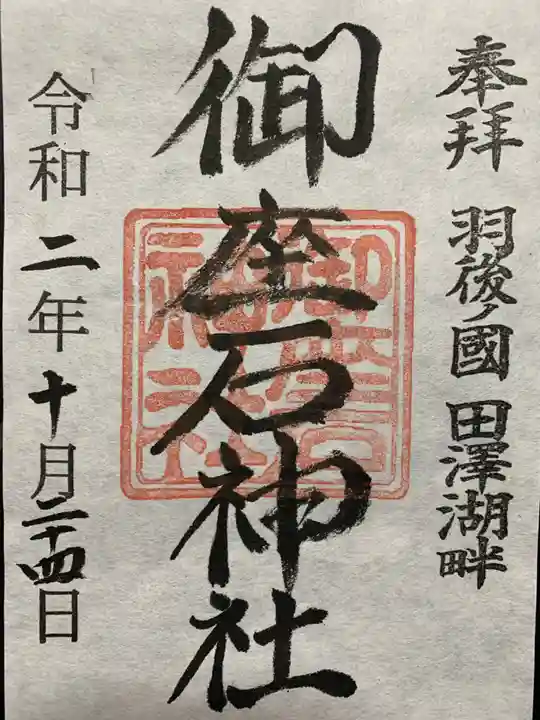 奉拝 羽後ノ國 田澤湖畔
御座石神社
令和二年十月二十四日
御座石
神社